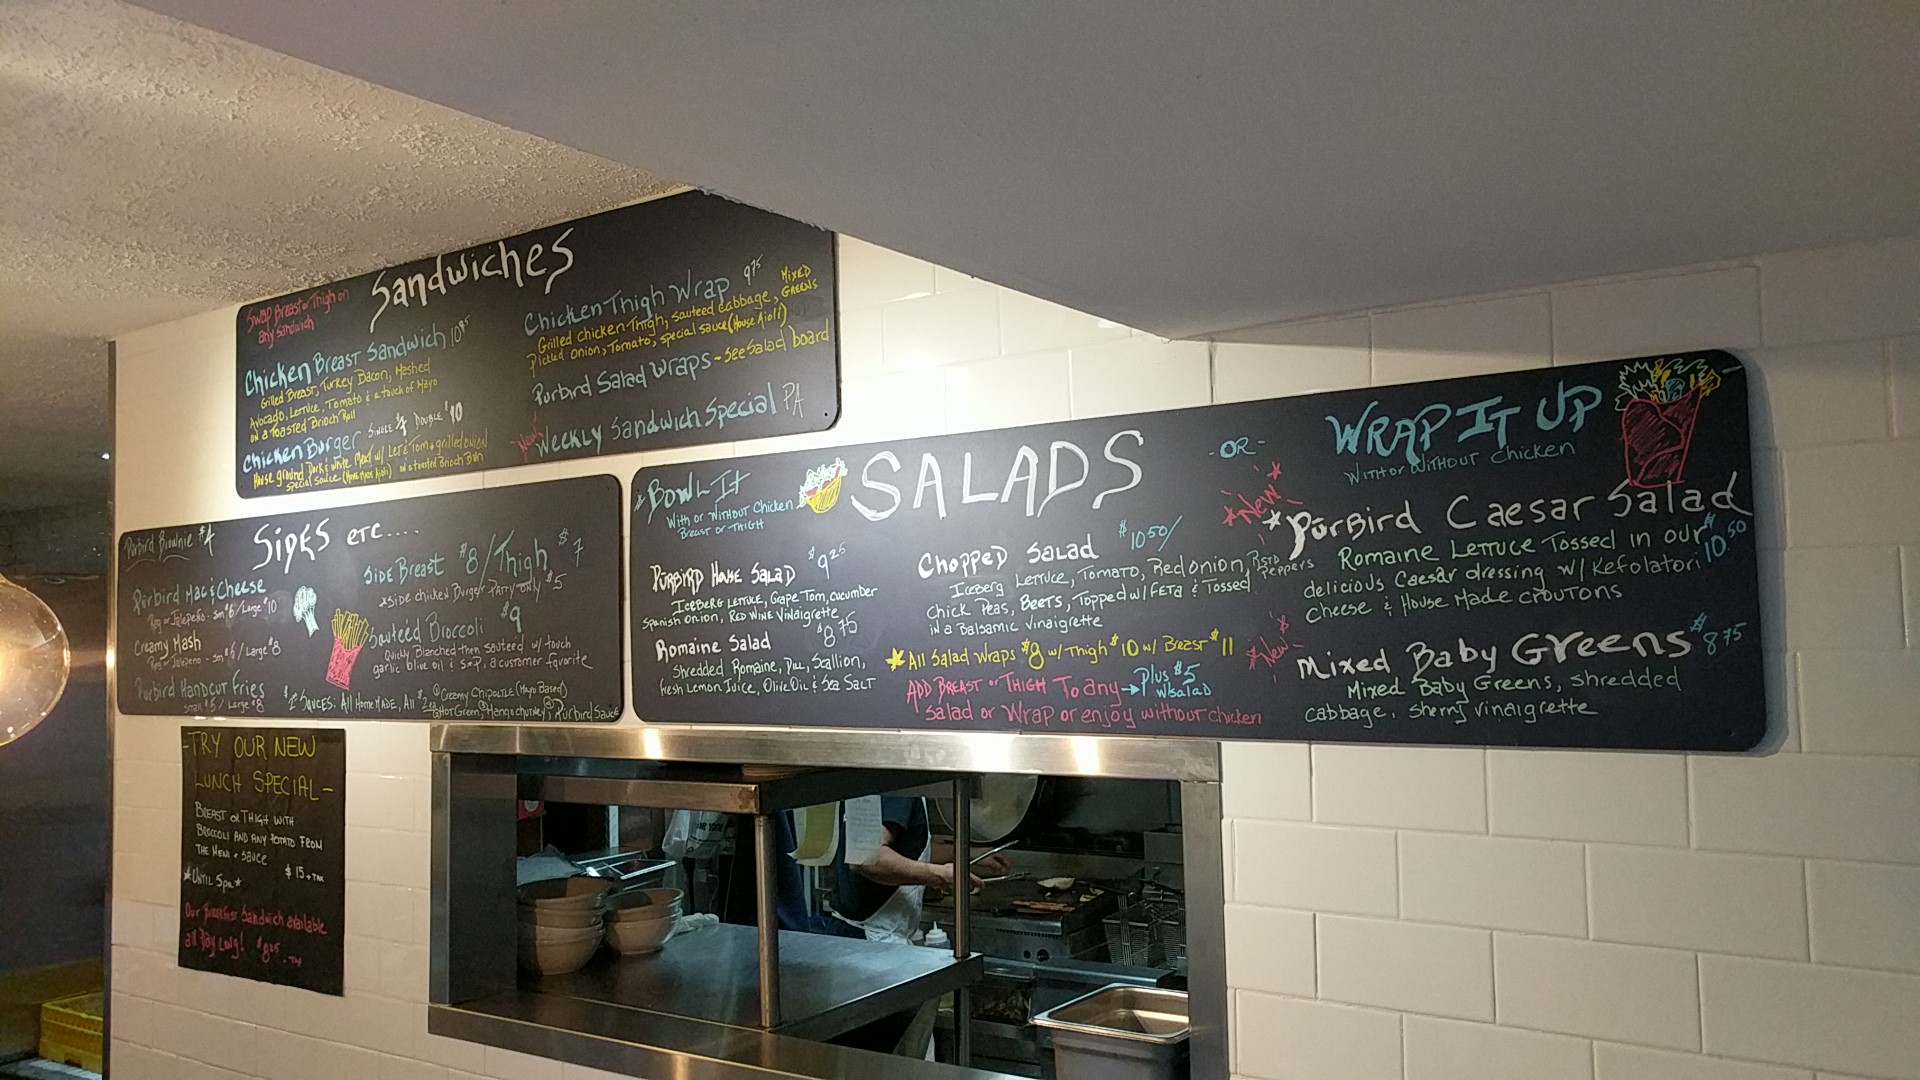 Sandwiches
Swap Breast or Thigh on
any Sandwich
Chicken Breast Sandwich
Grilled Breast, Turkey Bacon, Mashed
Avocado, Lettuce, Tomato & a touch of Mayo
on a Toasted Brioch Roll
Chicken Burger Single $7 Double $10
House ground Dark & White Meat w/ Lett Tom & grilled onion
special sauce (House Made Aioli) on a toasted Brioch Bun
Chicken Thigh Wrap 9 75
Grilled chicken Thigh, sauteed cabbage, Mixed Greens
Pickled onion, Tomato, special sauce (House Aioli)
Pürbird Salad Wraps - See Salad board
New
Weekly Sandwich Special PA
Pürbird Brownie $4
Sides etc....
Pürbird Mac & Cheese
Reg or Jalapeño - sm $6 / Large $10
Creamy Mash
Reg or Jalapeno - sm $5 / Large $8
Pürbird Handcut Fries
small $5 / Large $8
Side Breast $8 / Thigh $7
x side chicken Burger Patty only $5
Sautéed Broccoli $9
Quickly Blanched then sauteed w/ touch
garlic olive oil & S+P, a customer favorite
Sauces: All Home Made, All
Creamy Chipotle (Mayo Based)
Hot Green, Mango chutney, Pürbird Sauce
Bowl It
With or Without Chicken
Breast or Thigh
SALADS
-OR-
WRAP IT UP
With or Without Chicken
Pürbird House Salad $9 25
Iceberg Lettuce, Grape Tom, cucumber
Spanish Onion, Red Wine Vinaigrette
Romaine Salad $8 75
Shredded Romaine, Dill, Scallion,
fresh Lemon Juice, Olive Oil & Sea Salt
Chopped Salad $10 50/
Iceberg Lettuce, Tomato, Red onion, Rstd Peppers
Chick Peas, Beets, Topped w/ Feta & Tossed
in a Balsamic Vinaigrette
All Salad Wraps $8 w/ Thigh $10 w/ Breast $11
Add Breast or Thigh To any
Plus $5
w/salad
Salad or Wrap or enjoy without chicken
New
PürBird Caesar Salad
Romaine Lettuce Tossed in our $10.50
delicious Caesar dressing w/ Kefolatori
Cheese & House Made croutons
New
Mixed Baby Greens $8 75
Mixed Baby Greens, shredded
cabbage, Sherry vinaigrette
-TRY OUR NEW
LUNCH SPECIAL-
BREAST or THIGH WITH
BROCCOLI AND ANY POTATO FROM
THE MENU + SAUCE
$15 + TAX
*UNTIL 5pm*
Our Breakfast Sandwich available
all Day Long!